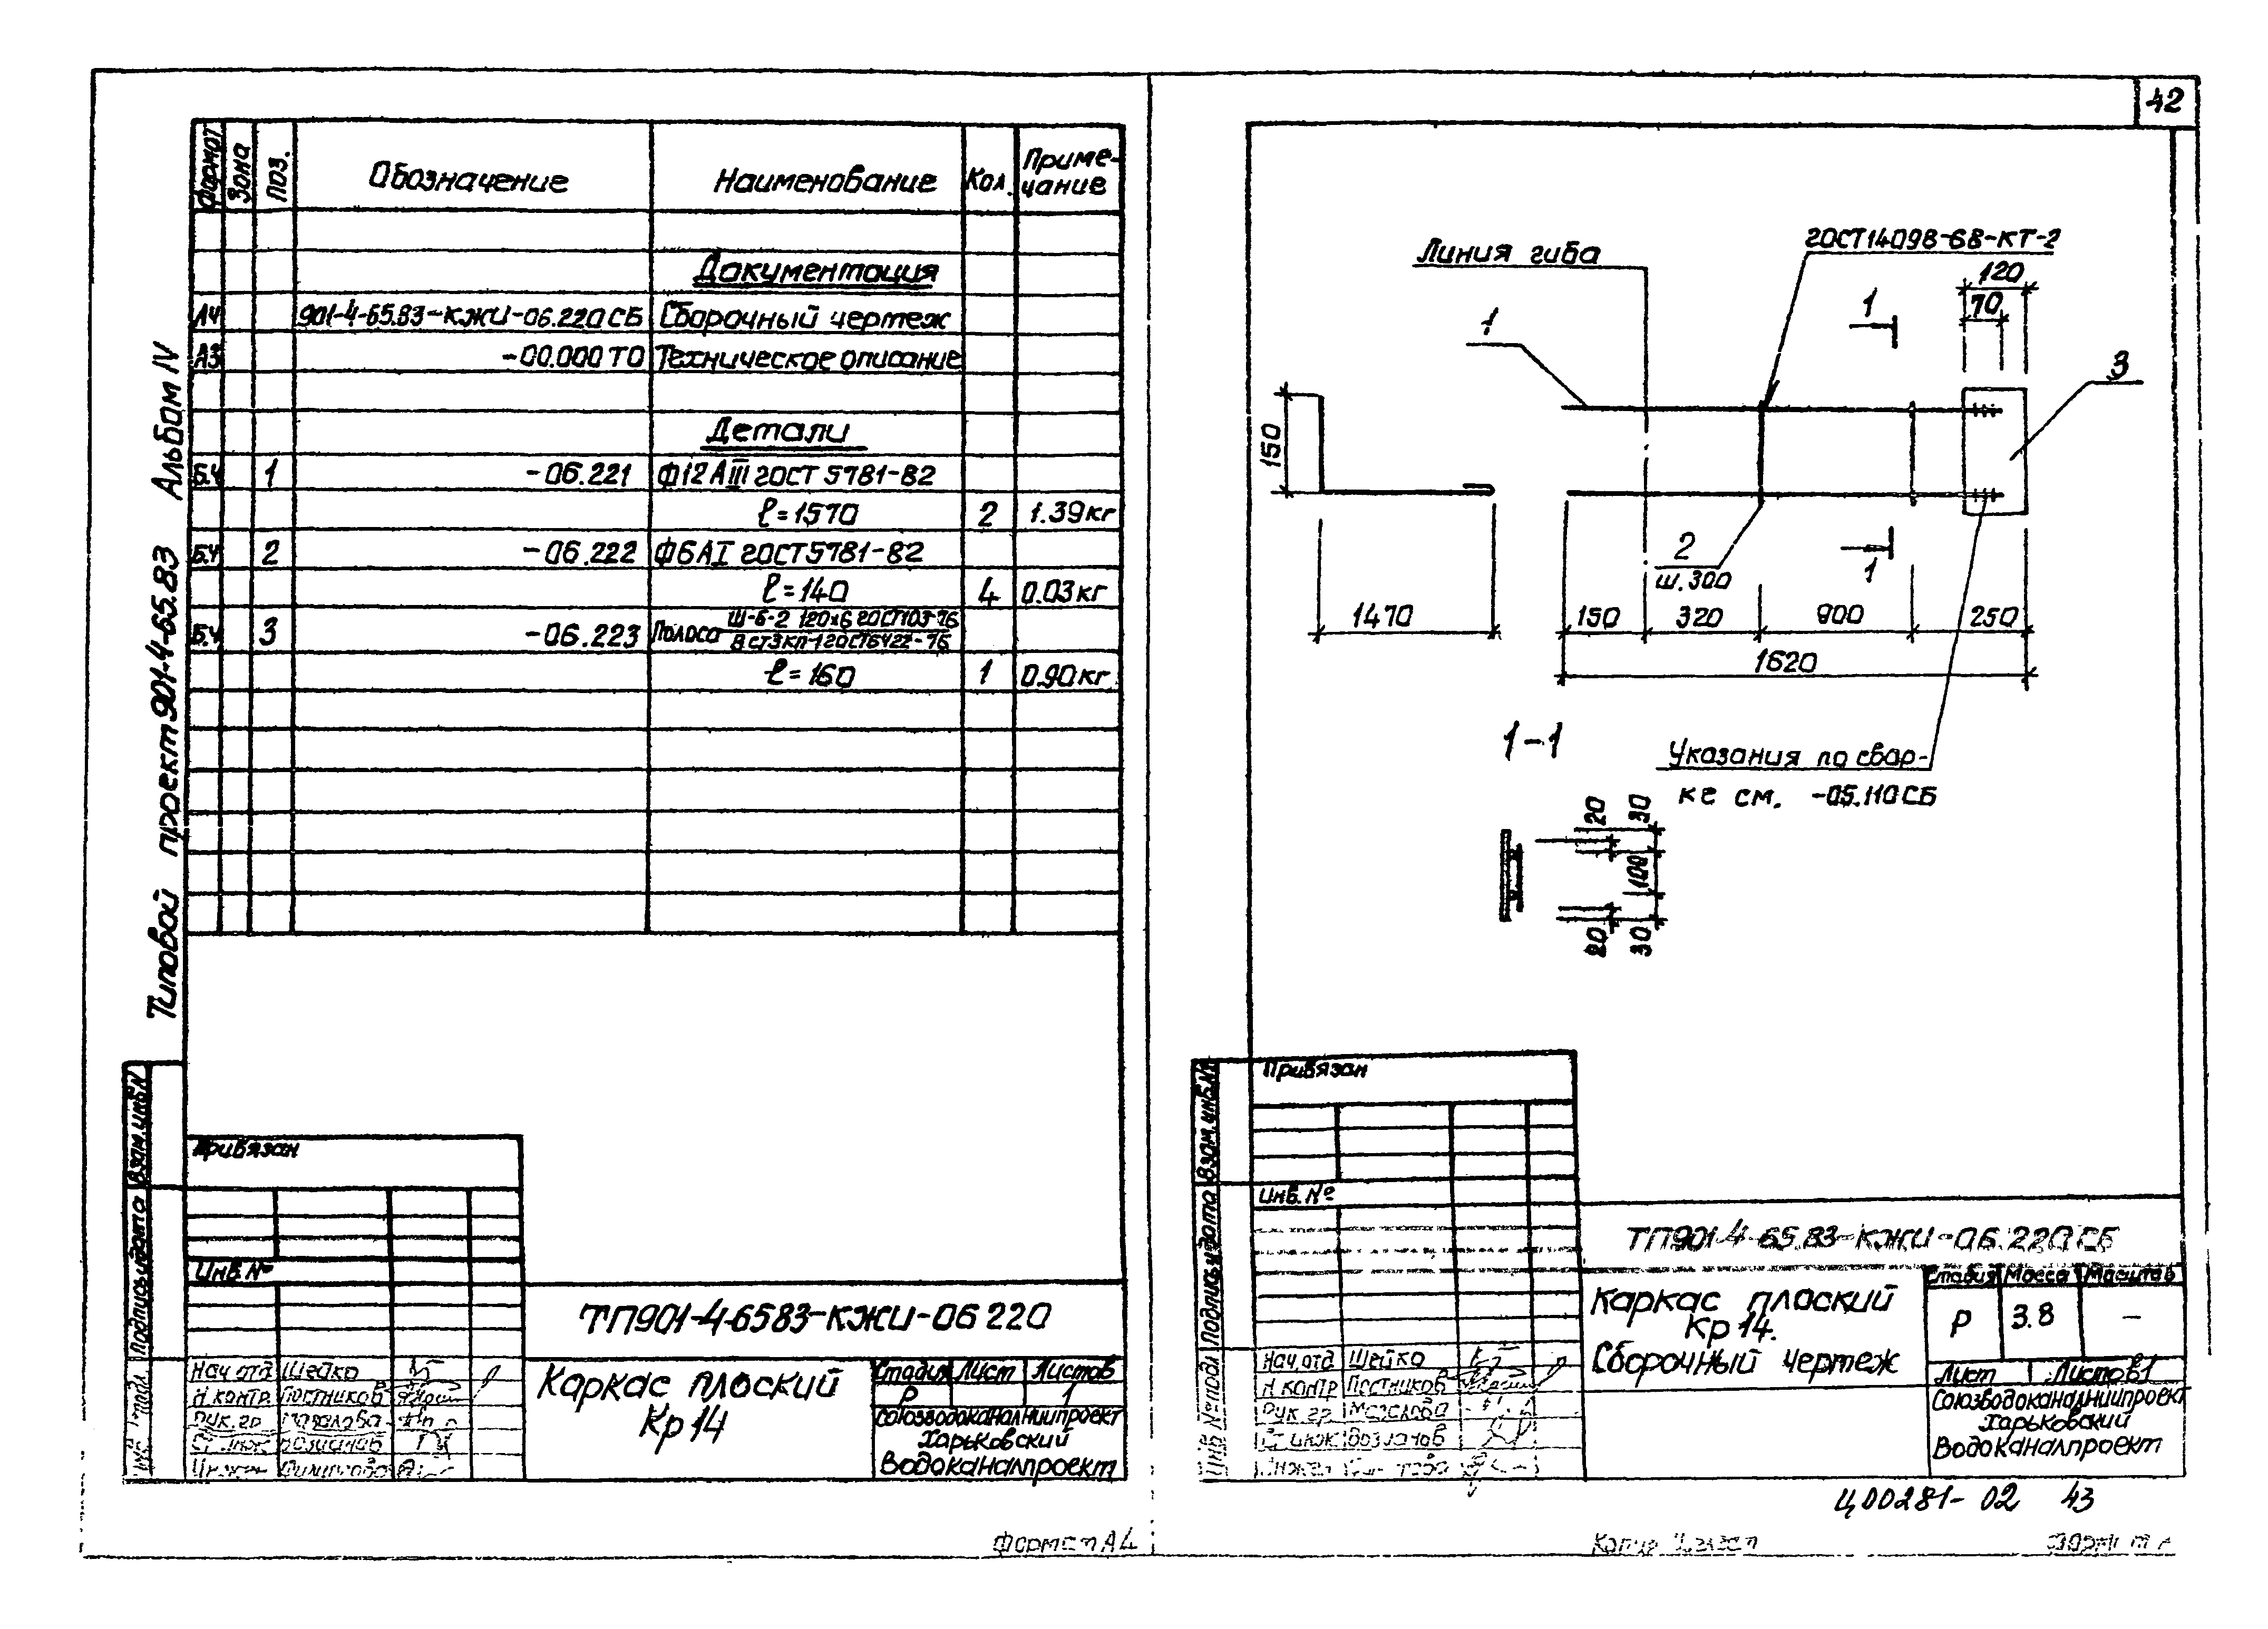 42
Типовой проект 901-4-65.83 Альбом IV
Формат Зона Поз. Обозначение Наименование Кол. Приме-
чание
Документация
А4 901-4-65.83-КЖИ-06.220СБ Сборочный чертеж
А3 -00.000 ТО Техническое описание
Детали
Б.Ч 1 -06.221 Ф12 АIII ГОСТ 5781-82
ℓ=1570 2 1.39кг
Б.Ч 2 -06.222 Ф6АI ГОСТ5781-82
ℓ=140 4 0.03кг
Б.Ч 3 -06.223 Полоса Ш-Б-2 120х6 ГОСТ103-76
ВСт3кп-1 ГОСТ6422-76
ℓ=160 1 0.90кг
Взам.инв.N
Подпись и дата
Привязан
Инв.№
ТП901-4-6583-КЖИ-06 220
Нач.отд Шейко
Н.контр. Постников
Рук.гр
Каркас плоский
Кр 14
Стадия Лист Листов
Р 1
Союзводоканалниипроект
Харьковский
Водоканалпроект
Формат А4
Линия гиба
ГОСТ14098-68-КТ-2
120
70
1
1
3
150
2
ш.300
1
1470
150 320 900 250
1620
1-1
Указания по свар-
ке см. -05.110СБ
20 30
100
20 30
Взам.инв.№
Подпись и дата
Инв №подл
Привязан
Инв.№
ТП901-4-65.83-КЖИ-06.220СБ
Каркас плоский
Кр 14.
Сборочный чертеж
Стадия Масса Масштаб
Р 3.8 —
Лист Листов 1
Нач.отд Шейко
Н.контр Постников
Рук.гр
Ст.инж
Союзводоканалниипроект
Харьковский
Водоканалпроект
Ц00281-02 43